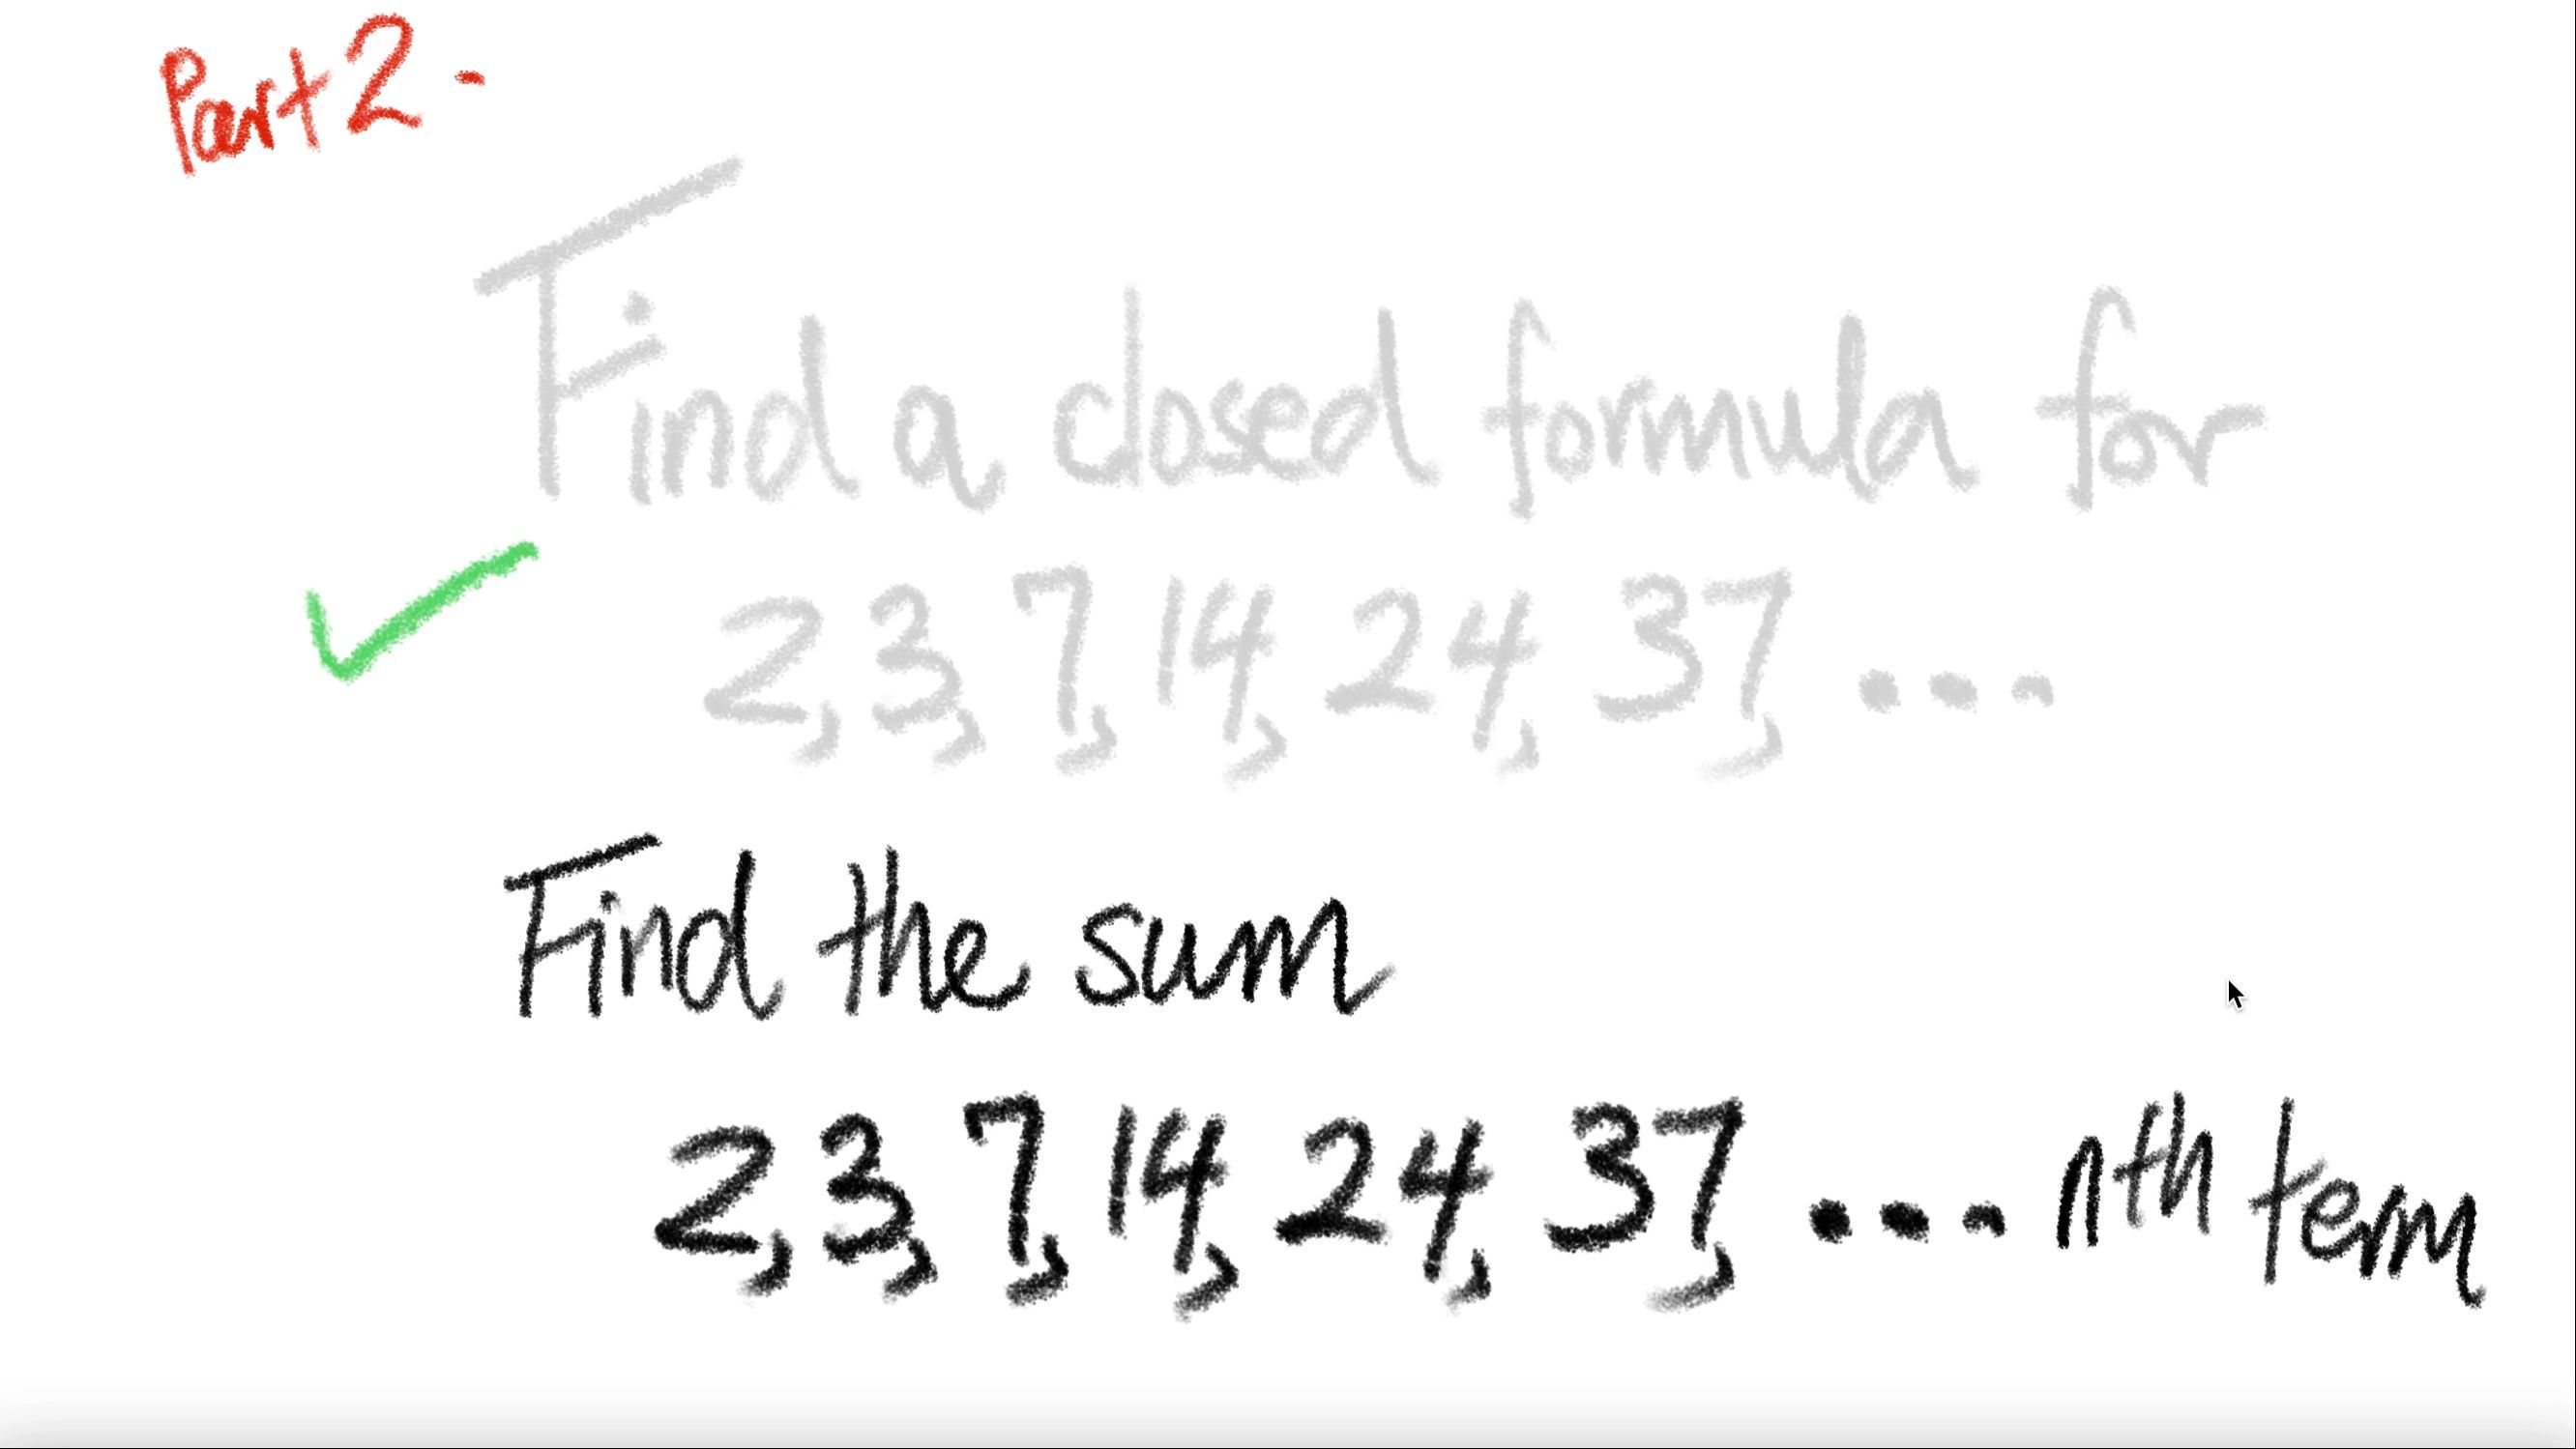 Part 2 -
Find a closed formula for
2, 3, 7, 14, 24, 37, ...
Find the sum
2, 3, 7, 14, 24, 37, ... nth term